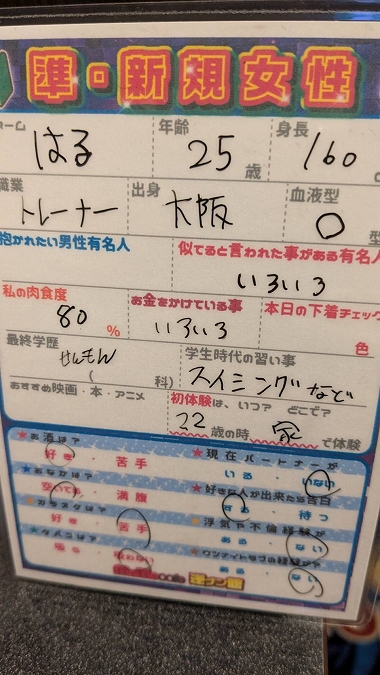 準・新規女性
年齢 身長
はる 25歳 160
職業 出身 血液型
トレーナー 大阪 O型
抱かれたい男性有名人 似てると言われた事がある有名人
いろいろ
私の肉食度 お金をかけている事 本日の下着チェック
80% いろいろ 色
最終学歴 学生時代の習い事
せんもん ( 科) スイミングなど
おすすめ映画・本・アニメ 初体験は、いつ? どこで?
22歳の時 家で体験
★お酒は? ★現在パートナーが
好き・苦手 いる・いない
★おなかは? ★好きな人が出来たら告白
空いてる・満腹 する・待つ
★カラオケは? ★浮気や不倫経験が
好き・苦手 ある・ない
★タバコは? ★ワンナイトラブの経験が?
吸う・吸わない ある・ない